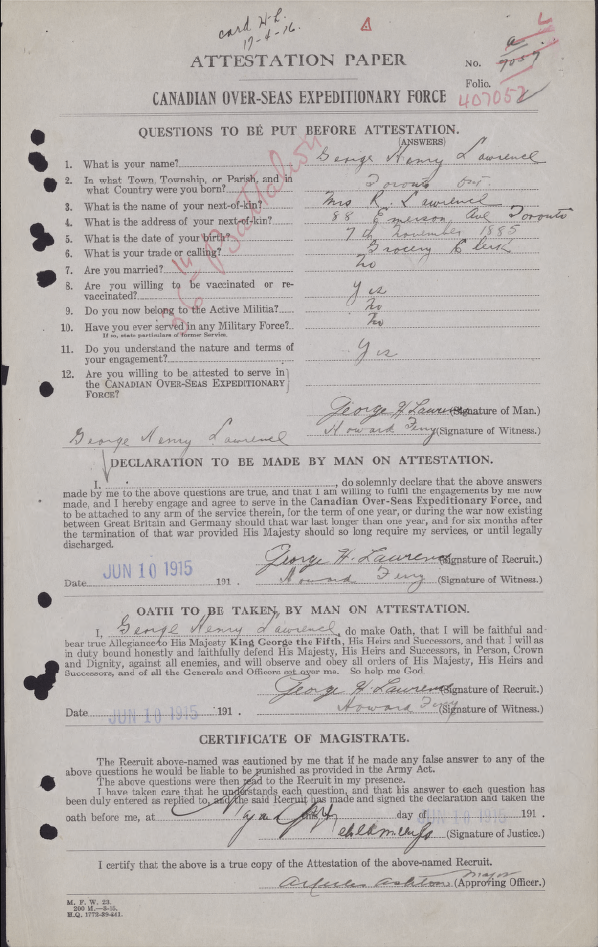 card H.L.
17-6-16.
ATTESTATION PAPER
No.
Folio.
407052
CANADIAN OVER-SEAS EXPEDITIONARY FORCE
QUESTIONS TO BE PUT BEFORE ATTESTATION.
(ANSWERS)
36th Battalion
1. What is your name? George Henry Lawrence
2. In what Town, Township, or Parish, and in
what Country were you born? Toronto Ont.
3. What is the name of your next-of-kin? Mrs R. Lawrence
4. What is the address of your next-of-kin? 88 Emerson Ave Toronto
5. What is the date of your birth? 7th November 1885
6. What is your trade or calling? Grocery Clerk
7. Are you married? No
8. Are you willing to be vaccinated or re-
vaccinated? Yes
9. Do you now belong to the Active Militia? No
10. Have you ever served in any Military Force? No
If so, state particulars of former Service.
11. Do you understand the nature and terms of
your engagement? Yes
12. Are you willing to be attested to serve in
the CANADIAN OVER-SEAS EXPEDITIONARY
FORCE?
George H Lawrence (Signature of Man.)
George Henry Lawrence
Howard Ferry (Signature of Witness.)
DECLARATION TO BE MADE BY MAN ON ATTESTATION.
I, , do solemnly declare that the above answers
made by me to the above questions are true, and that I am willing to fulfil the engagements by me now
made, and I hereby engage and agree to serve in the Canadian Over-Seas Expeditionary Force, and
to be attached to any arm of the service therein, for the term of one year, or during the war now existing
between Great Britain and Germany should that war last longer than one year, and for six months after
the termination of that war provided His Majesty should so long require my services, or until legally
discharged.
George H. Lawrence (Signature of Recruit.)
Date JUN 10 1915 191 . Howard Ferry (Signature of Witness.)
OATH TO BE TAKEN BY MAN ON ATTESTATION.
I, George Henry Lawrence, do make Oath, that I will be faithful and
bear true Allegiance to His Majesty King George the Fifth, His Heirs and Successors, and that I will as
in duty bound honestly and faithfully defend His Majesty, His Heirs and Successors, in Person, Crown
and Dignity, against all enemies, and will observe and obey all orders of His Majesty, His Heirs and
Successors, and of all the Generals and Officers set over me. So help me God.
George H Lawrence (Signature of Recruit.)
Date JUN 10 1915 191 . Howard Ferry (Signature of Witness.)
CERTIFICATE OF MAGISTRATE.
The Recruit above-named was cautioned by me that if he made any false answer to any of the
above questions he would be liable to be punished as provided in the Army Act.
The above questions were then read to the Recruit in my presence.
I have taken care that he understands each question, and that his answer to each question has
been duly entered as replied to, and the said Recruit has made and signed the declaration and taken the
oath before me, at this day of JUN 10 1915 191 .
(Signature of Justice.)
I certify that the above is a true copy of the Attestation of the above-named Recruit.
Ashton Major (Approving Officer.)
M. F. W. 23.
200 M.—3-15.
H.Q. 1772-39-841.